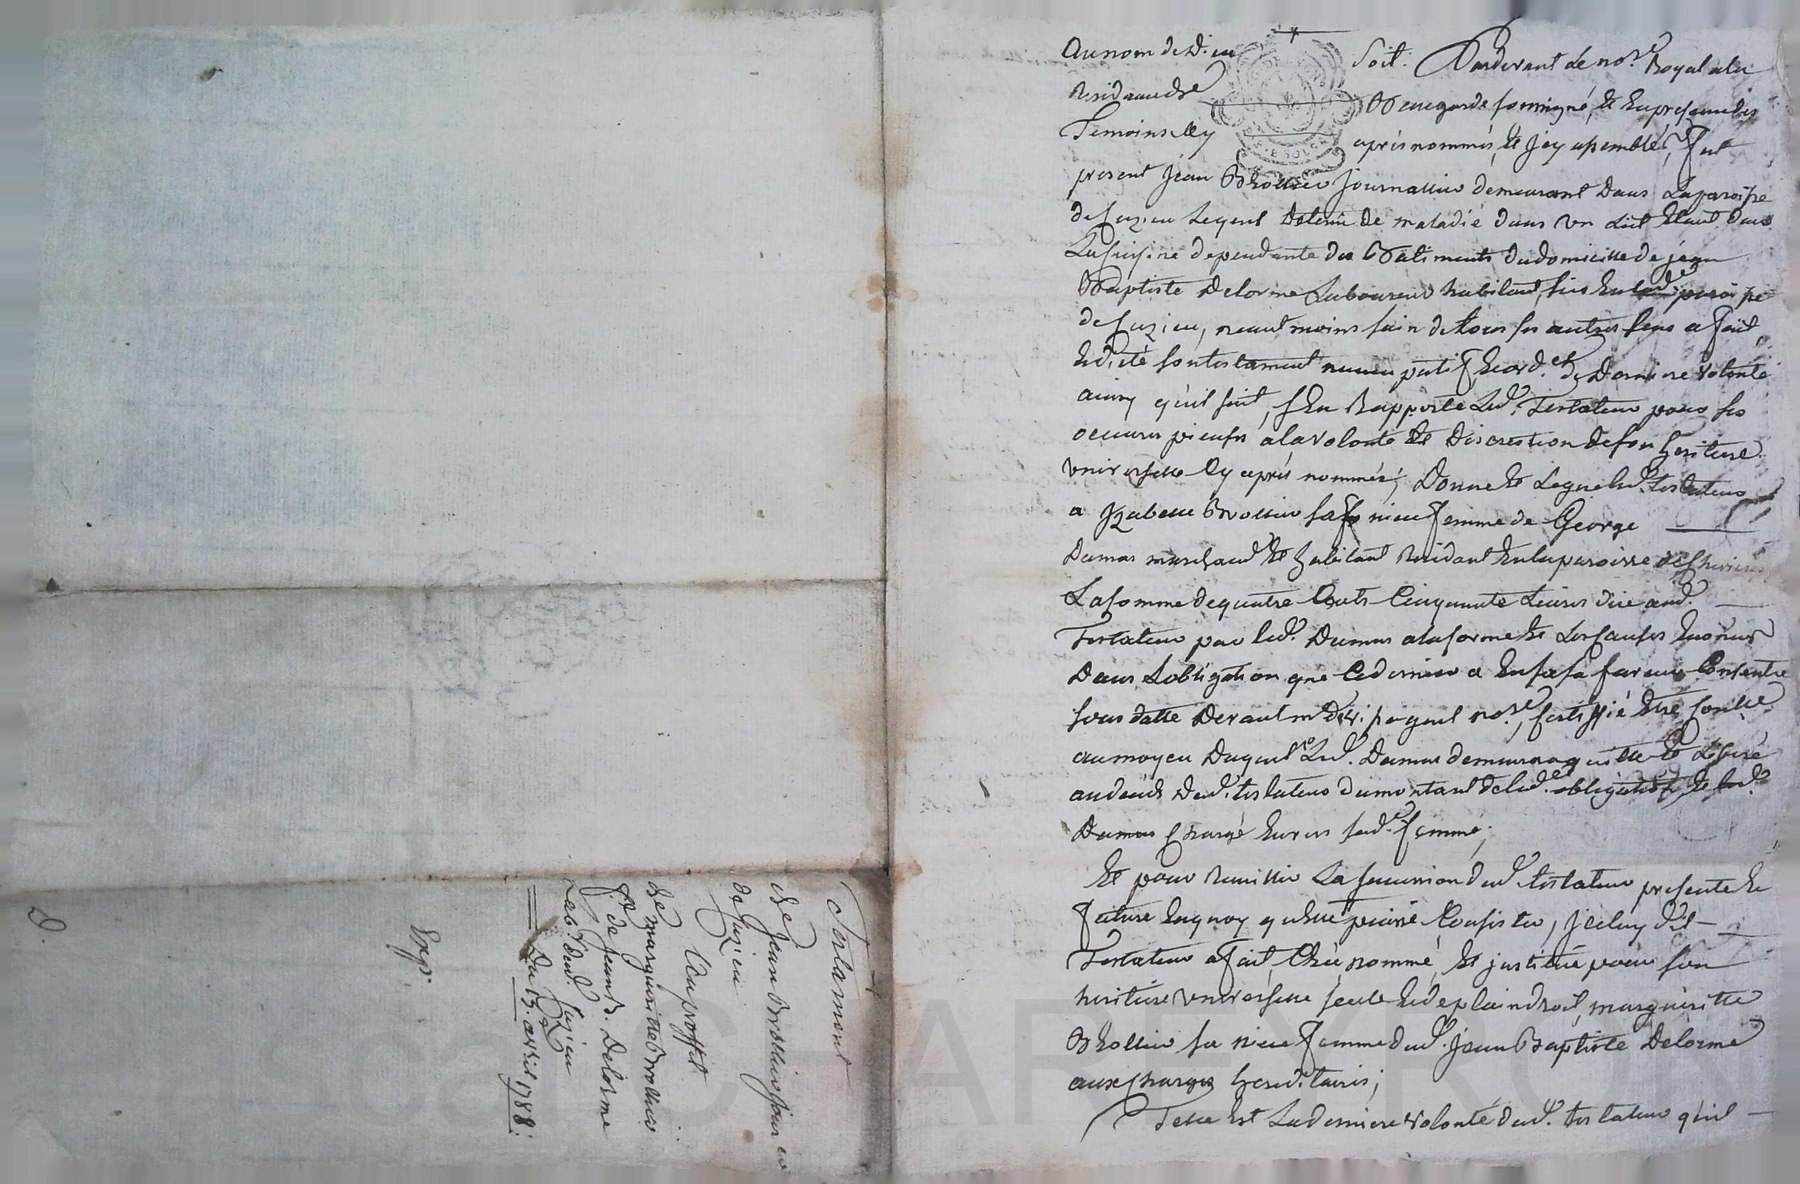 Au nom de Dieu soit. Pardevant le nore. Royal a la
residance de Beauregarde soussigné, et en presence des
Temoins cy après nommés, et Jcy assemblés, fut
present Jean Brollier Journallier demeurant dans la paroisse
de Juzieu lequel detenu de maladie dans un Lict etant dans
La cuisine dependante des Batiments du domicille de jean
Baptiste Delorme Laboureur habitant, sis en lad. paroisse
de Juzieu, neant moins sain de tous ses autres sens a fait
et dicté son testament nuncupatif et ord. de Derniere volonté
ainsy qu'il suit, s'En Rapporte Led. Testateur pour ses
oeuvres pieuses a la volonté et Discretion de son heritiere
universelle Cy après nommée; Donne et Legue led. testateur
a Jzabelle Brollier sa niece femme de George
Dumas marchand et habitant residant en la paroisse de
La somme de quatre Cents Cinquante Livres due aud.
Testateur par led. Dumas a la forme et
Dans Lobligation que Ce dernier a en sa faveur Consentie
sous datte Devant me nore., certiffié etre
au moyen Duquel Led. Dumas demeurera quitte et Liberé
dud. testateur du montant de lad. obligation et led.
Dumas Chargé Envers sad. femme;
Et pour recuillir La succession dud. testateur presente et
future En quoy qu'elle puisse Consister, jceluy dit
Testateur a fait, Crée nommé, et jnstitué pour son
heritiere universelle seule et de plain droit, marguéritte
Brollier sa niece femme dud. Jean Baptiste Delorme
aux charges hereditaires;
Telle est La derniere volonté dud. testateur qu'il
Testament
de Jean Brollier jour er
de Juzieu
Au proffit
de marguéritte Brollier
fe. de Jean B. Delorme
Labr. Dud. Juzieu
Du 13. avril 1788.
Exp.
D.